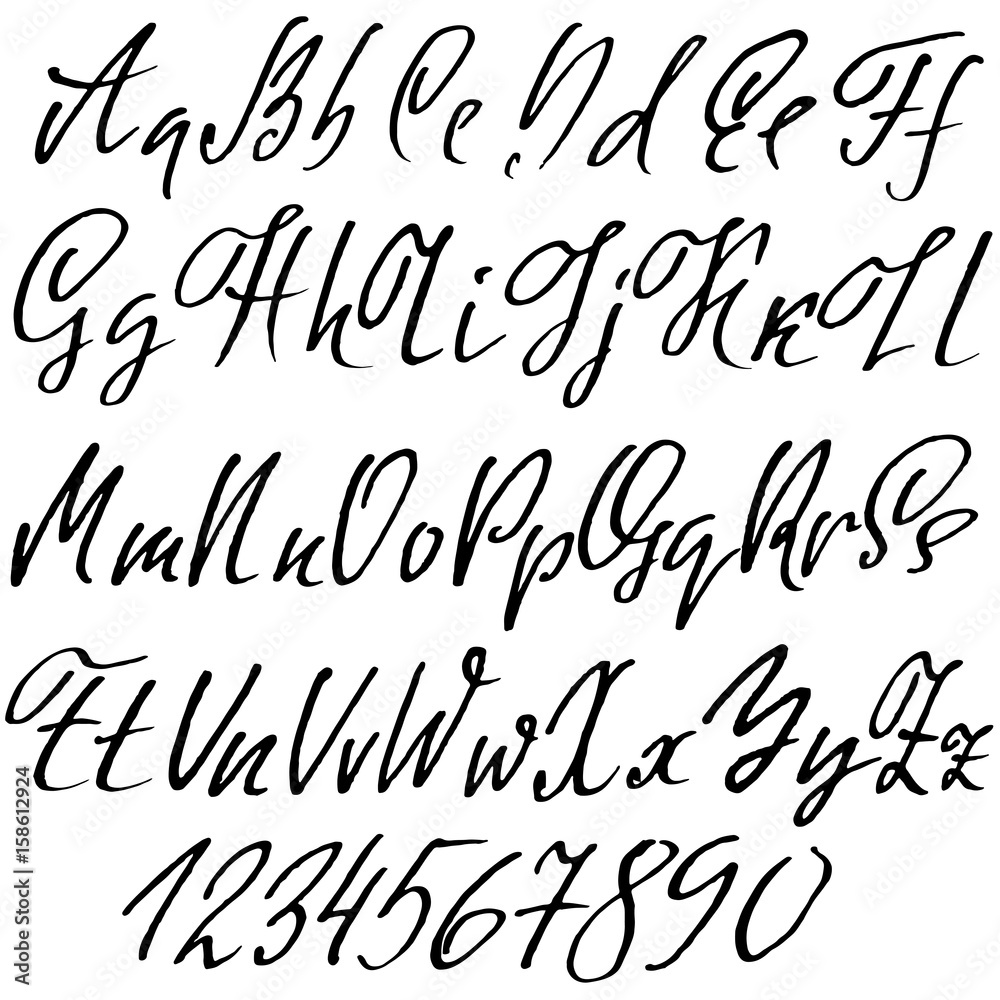 AaBbCcDdEeFf
GgHhIiJjKkLl
MmNnOoPpQqRrSs
TtUuVvWwXxYyZz
1234567890
Adobe Stock | #158612924